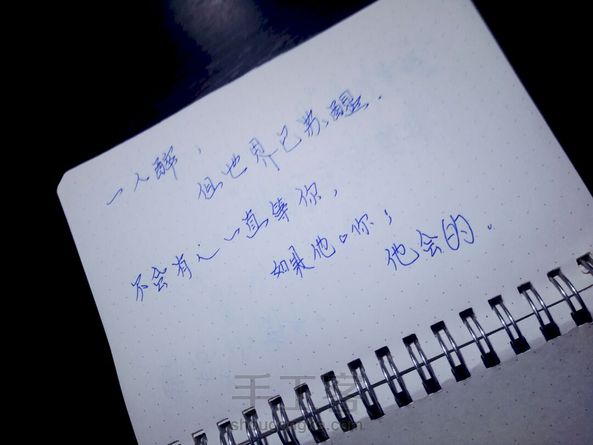 一人醉，
但世界已苏醒.
不会有人一直等你，
如果他你，
他会的.
手工客